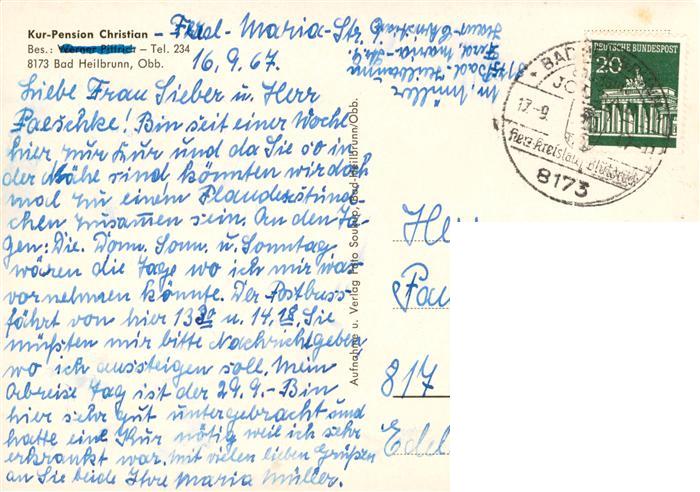 Kur-Pension Christian - Ferd-Maria-Str. 6
Bes.: Werner Pittrich – Tel. 234
8173 Bad Heilbrunn, Obb.
16.9.67.
Liebe Frau Sieber u. Herr
Paeschke! Bin seit einer Woche
hier zur Kur und da Sie so in
der Nähe sind könnten wir doch
mal zu einem Plauderstünd-
chen zusammen sein. An den Ta-
gen: Die. Donn. Sonn. u. Sonntag
wären die Tage wo ich mir was
vornehmen könnte. Der Postbuss
fährt von hier 13 20 u. 14,18. Sie
müßten mir bitte Nachricht geben
wo ich aussteigen soll. Mein
Abreise Tag ist der 29.9.- Bin
hier sehr gut untergebracht und
hatte eine Kur nötig weil ich sehr
erkrankt war. Mit vielen lieben Grüßen
an Sie beide Ihre Maria Müller.
M. Müller
Bad-Heilbrunn
Ferd. Maria-Str. 6
Haus Christian
Aufnahme u. Verlag Foto Soukup, Bad-Heilbrunn/Obb.
DEUTSCHE BUNDESPOST
20
BAD
JO
17.-9.
Herz Kreislauf Blutdruck
8173
Her
Pae
817